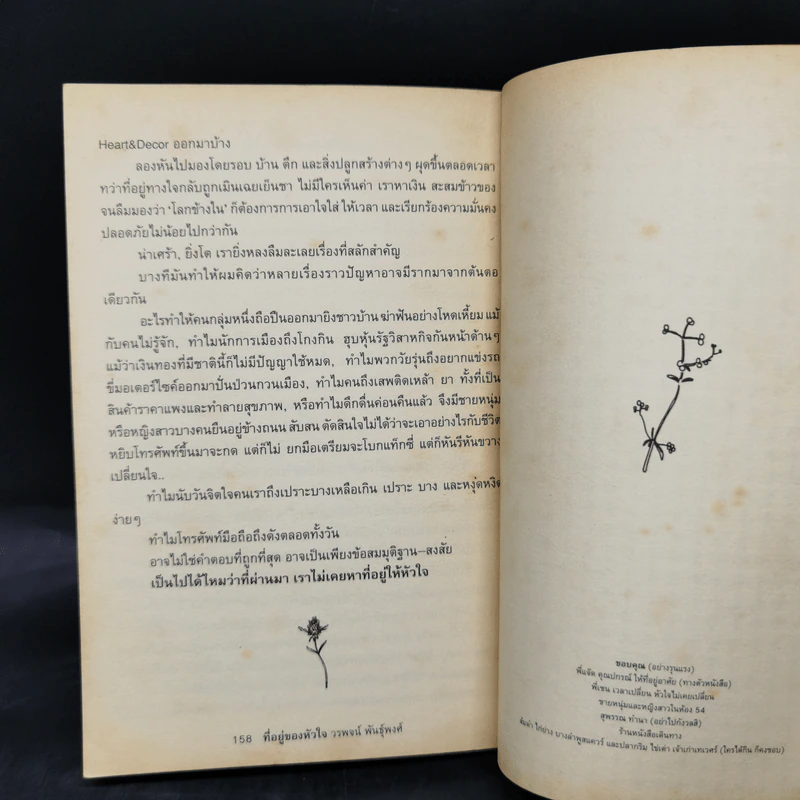 Heart&Decor ออกมาบ้าง
ลองหันไปมองโดยรอบ บ้าน ตึก และสิ่งปลูกสร้างต่างๆ ผุดขึ้นตลอดเวลา
ทว่าที่อยู่ทางใจกลับถูกเมินเฉยเย็นชา ไม่มีใครเห็นค่า เราหาเงิน สะสมข้าวของ
จนลืมมองว่า ‘โลกข้างใน’ ก็ต้องการการเอาใจใส่ ให้เวลา และเรียกร้องความมั่นคง
ปลอดภัยไม่น้อยไปกว่ากัน
น่าเศร้า, ยิ่งโต เรายิ่งหลงลืมละเลยเรื่องที่สลักสำคัญ
บางทีมันทำให้ผมคิดว่าหลายเรื่องราวปัญหาอาจมีรากมาจากต้นตอ
เดียวกัน
อะไรทำให้คนกลุ่มหนึ่งถือปืนออกมายิงชาวบ้าน ฆ่าฟันอย่างโหดเหี้ยม แม้
กับคนไม่รู้จัก, ทำไมนักการเมืองถึงโกงกิน ฮุบหุ้นรัฐวิสาหกิจกันหน้าด้านๆ
แม้ว่าเงินทองที่มีชาตินี้ก็ไม่มีปัญญาใช้หมด, ทำไมพวกวัยรุ่นถึงอยากแข่งรถ
ขี่มอเตอร์ไซค์ออกมาปั่นป่วนกวนเมือง, ทำไมคนถึงเสพติดเหล้า ยา ทั้งที่เป็น
สินค้าราคาแพงและทำลายสุขภาพ, หรือทำไมดึกดื่นค่อนคืนแล้ว จึงมีชายหนุ่ม
หรือหญิงสาวบางคนยืนอยู่ข้างถนน สับสน ตัดสินใจไม่ได้ว่าจะเอาอย่างไรกับชีวิต
หยิบโทรศัพท์ขึ้นมาจะกด แต่ก็ไม่ ยกมือเตรียมจะโบกแท็กซี่ แต่ก็หันรีหันขวาง
เปลี่ยนใจ..
ทำไมนับวันจิตใจคนเราถึงเปราะบางเหลือเกิน เปราะ บาง และหงุดหงิด
ง่ายๆ
ทำไมโทรศัพท์มือถือถึงดังตลอดทั้งวัน
อาจไม่ใช่คำตอบที่ถูกที่สุด อาจเป็นเพียงข้อสมมุติฐาน–สงสัย
เป็นไปได้ไหมว่าที่ผ่านมา เราไม่เคยหาที่อยู่ให้หัวใจ
158 ที่อยู่ของหัวใจ วรพจน์ พันธุ์พงศ์
ขอบคุณ (อย่างรุนแรง)
พี่แจ๊ด คุณปกรณ์ ให้ที่อยู่อาศัย (ทางตัวหนังสือ)
พี่เชน เวลาเปลี่ยน หัวใจไม่เคยเปลี่ยน
ชายหนุ่มและหญิงสาวในห้อง 54
สุพรรณ ทำนา (อย่าไปกังวลสิ)
ร้านหนังสือเดินทาง
ส้มตำ ไก่ย่าง บางลำพูสแควร์ และปลากริม ไข่เต่า เจ้าเก่าเทเวศร์ (ใครได้กิน ก็คงชอบ)